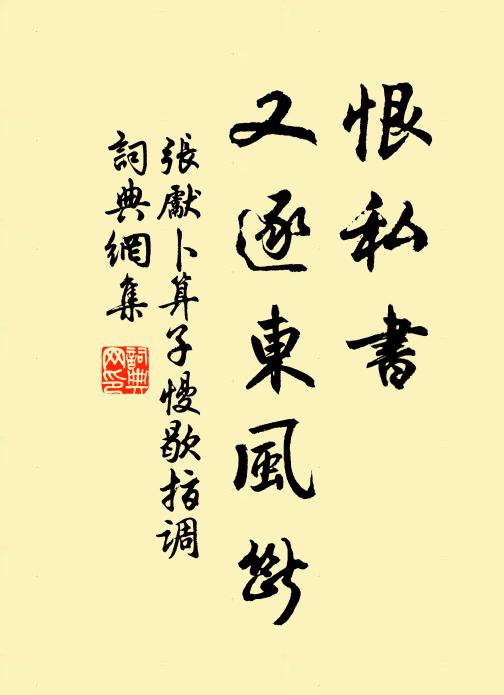 恨私書
又逐東風斷
張獻卜算子慢歇指調
詞典網集
詞典网印